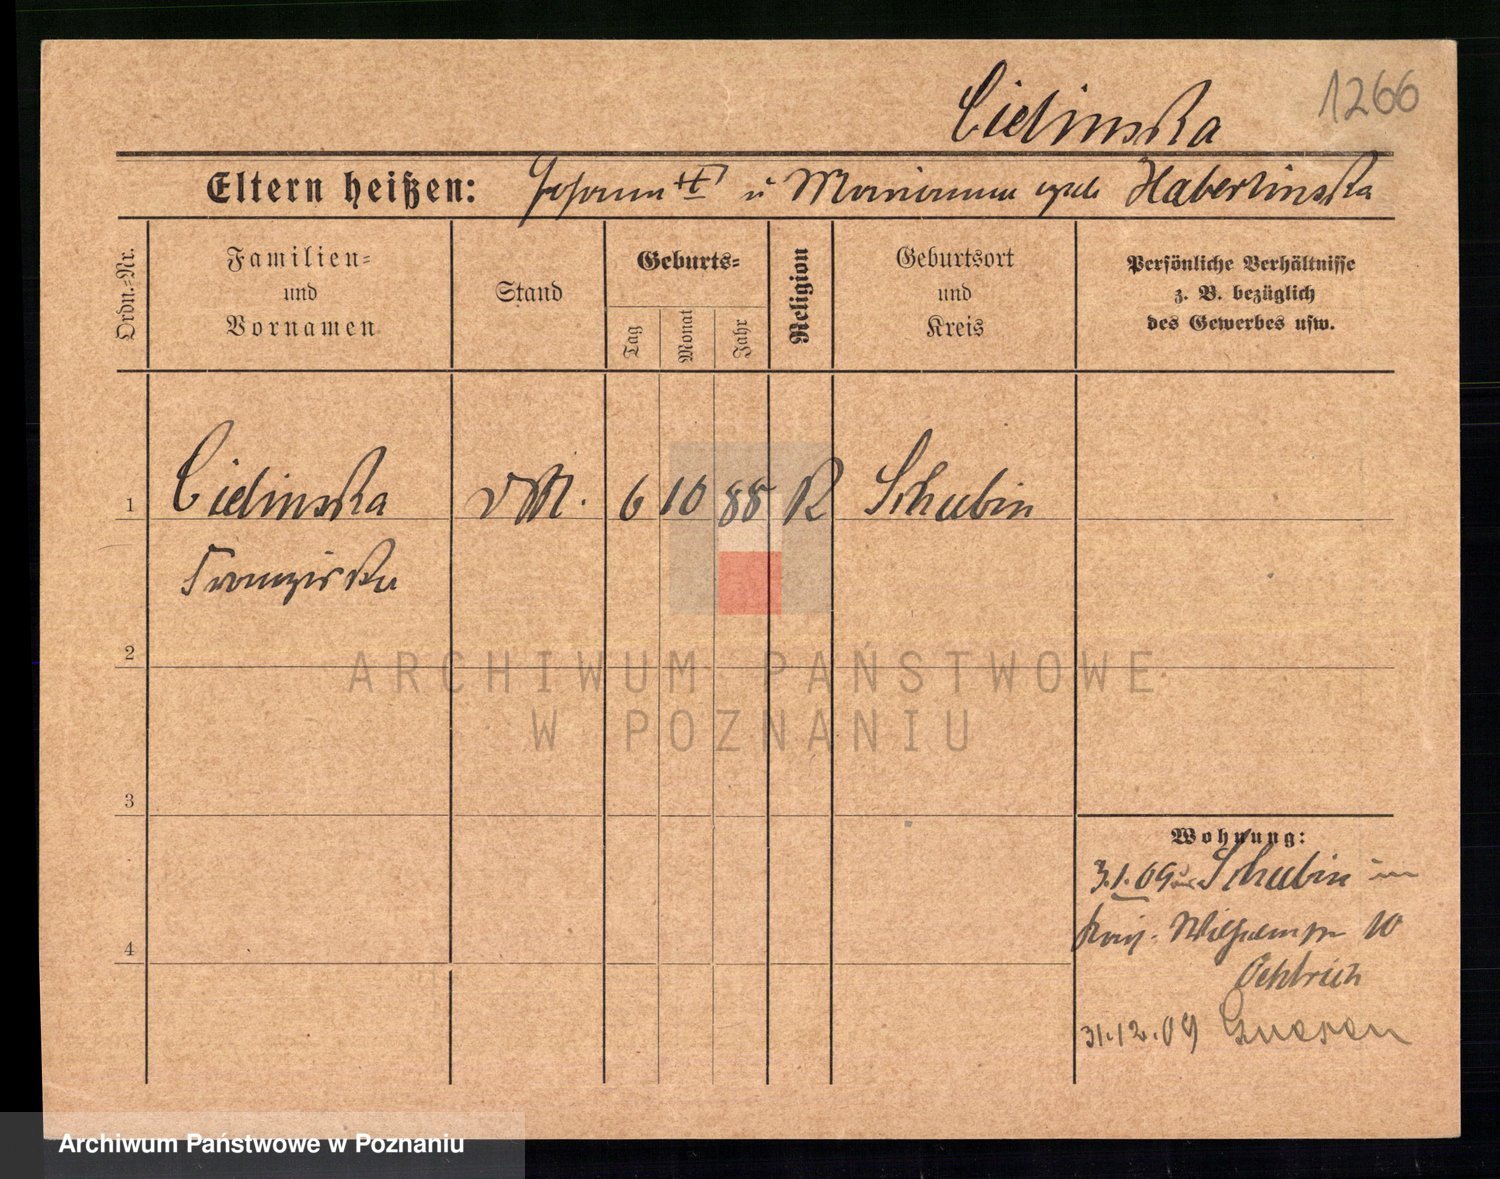 1266
Cielinska
Eltern heißen: Johann # u Marianna geb Haberlinska
Ordn.-Nr.
Familien-
und
Vornamen
Stand
Geburts-
Tag
Monat
Jahr
Religion
Geburtsort
und
Kreis
Persönliche Verhältnisse
z. B. bezüglich
des Gewerbes usw.
1 Cielinska 6 10 88 R Schubin
Franziska
2
ARCHIWUM PAŃSTWOWE
W POZNANIU
3
Wohnung:
3.1.09 Schubin
Wilhelmstr 10
4
31.12.09 Gnesen
Archiwum Państwowe w Poznaniu